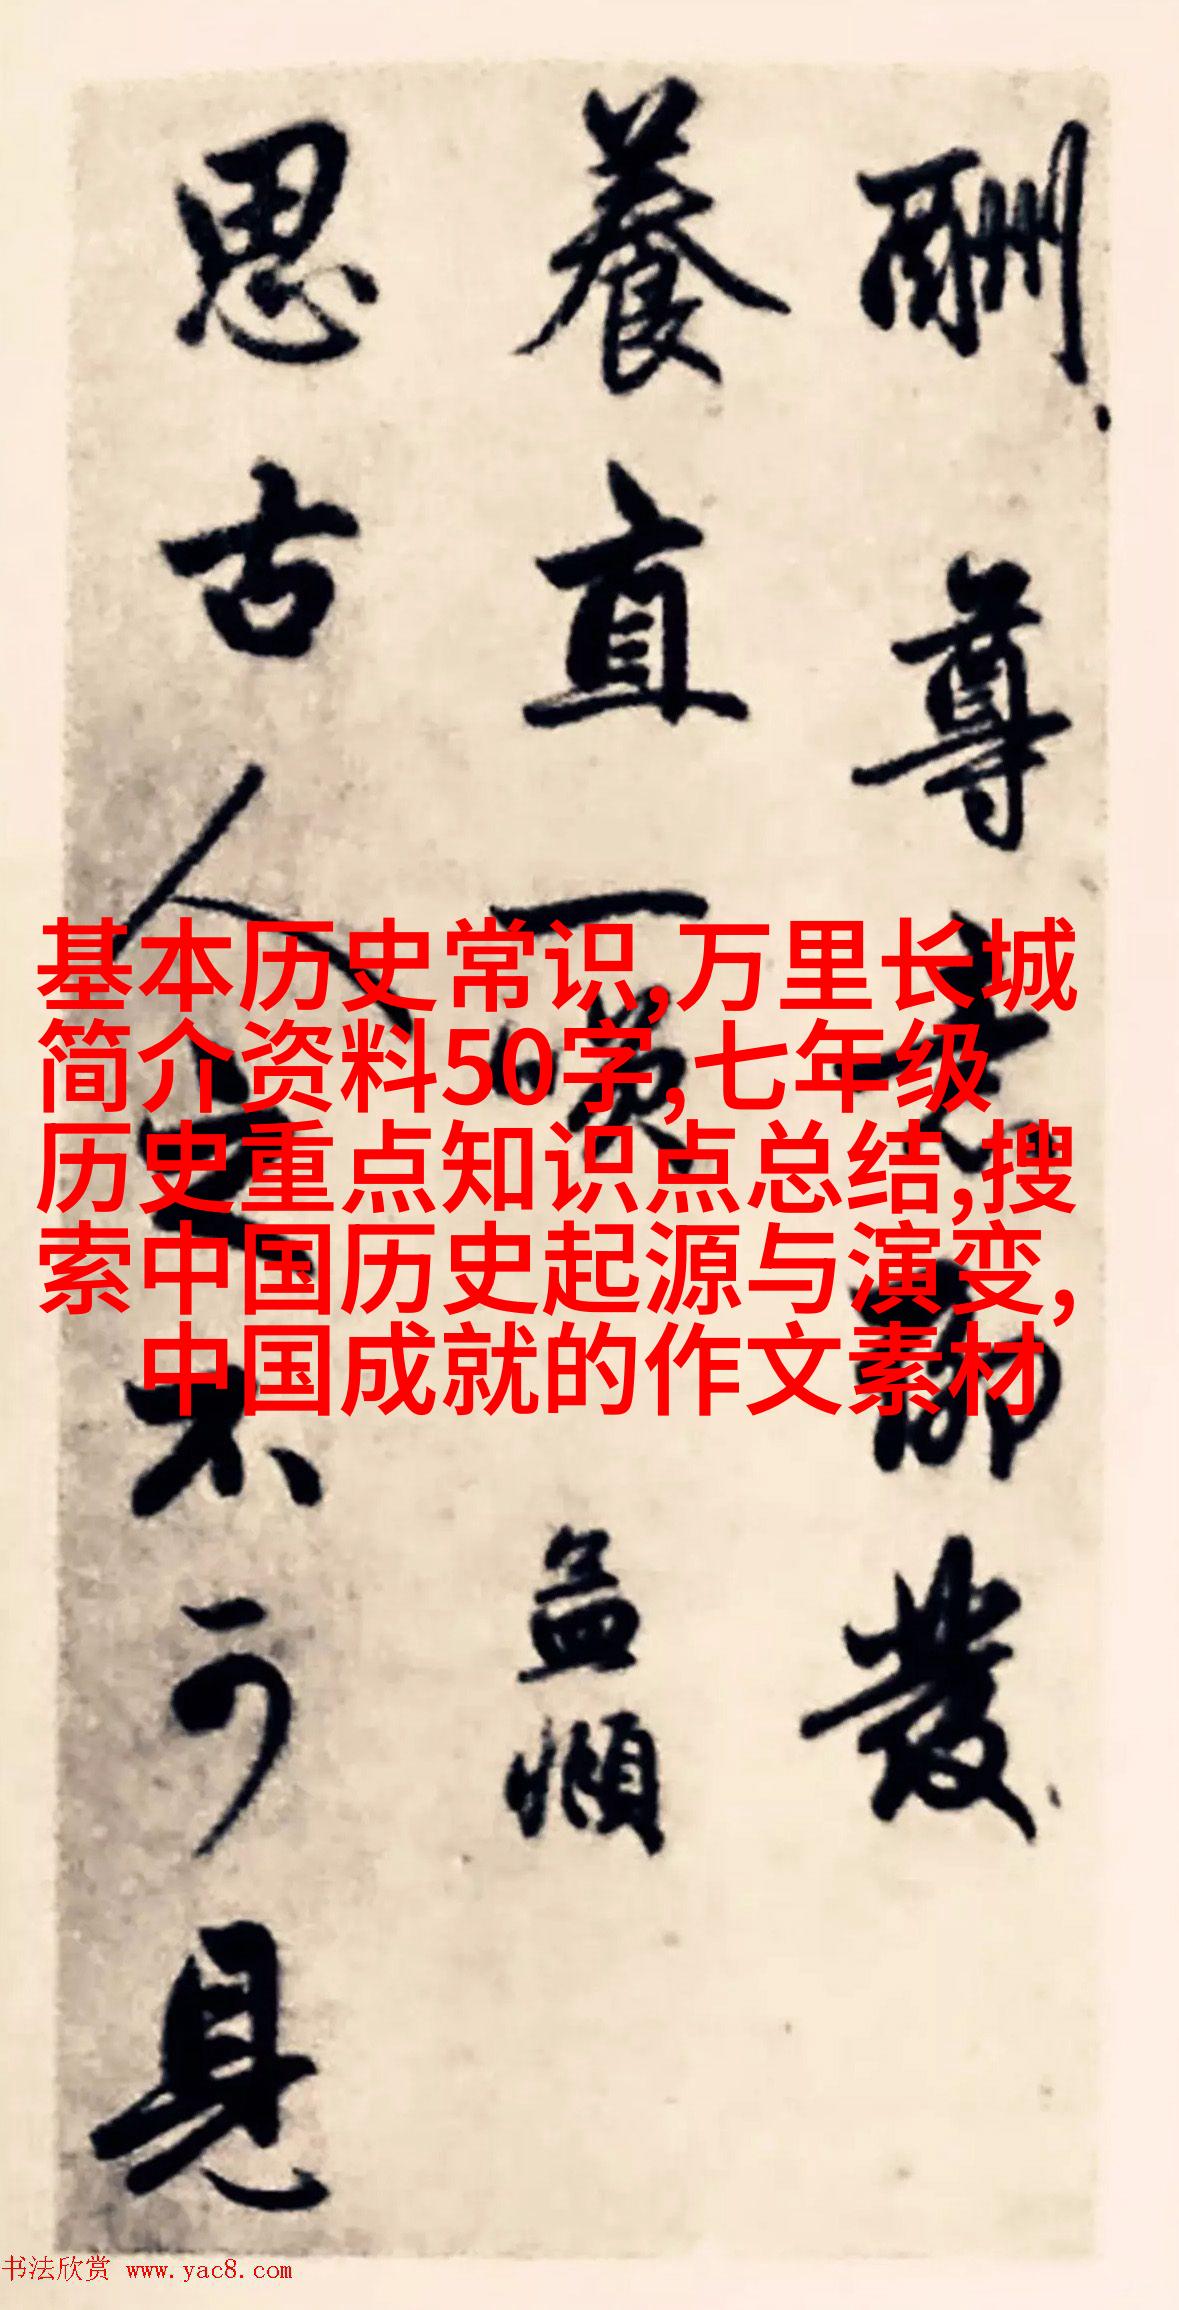 酬尊意聊發
養直一噗孟頫
思古人之不可見
基本历史常识,万里长城
简介资料50字,七年级
历史重点知识点总结,搜
索中国历史起源与演变,
中国成就的作文素材
书法欣赏 www.yac8.com